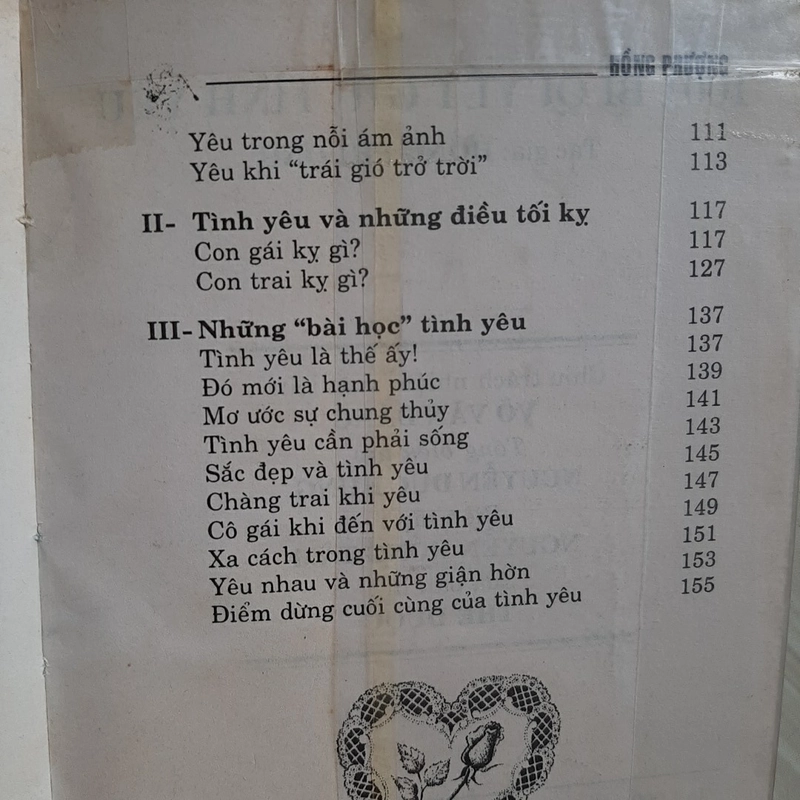 HỒNG PHƯỢNG
Yêu trong nỗi ám ảnh 111
Yêu khi “trái gió trở trời” 113
II- Tình yêu và những điều tối kỵ 117
Con gái kỵ gì? 117
Con trai kỵ gì? 127
III- Những “bài học” tình yêu 137
Tình yêu là thế ấy! 137
Đó mới là hạnh phúc 139
Mơ ước sự chung thủy 141
Tình yêu cần phải sống 143
Sắc đẹp và tình yêu 145
Chàng trai khi yêu 147
Cô gái khi đến với tình yêu 149
Xa cách trong tình yêu 151
Yêu nhau và những giận hờn 153
Điểm dừng cuối cùng của tình yêu 155